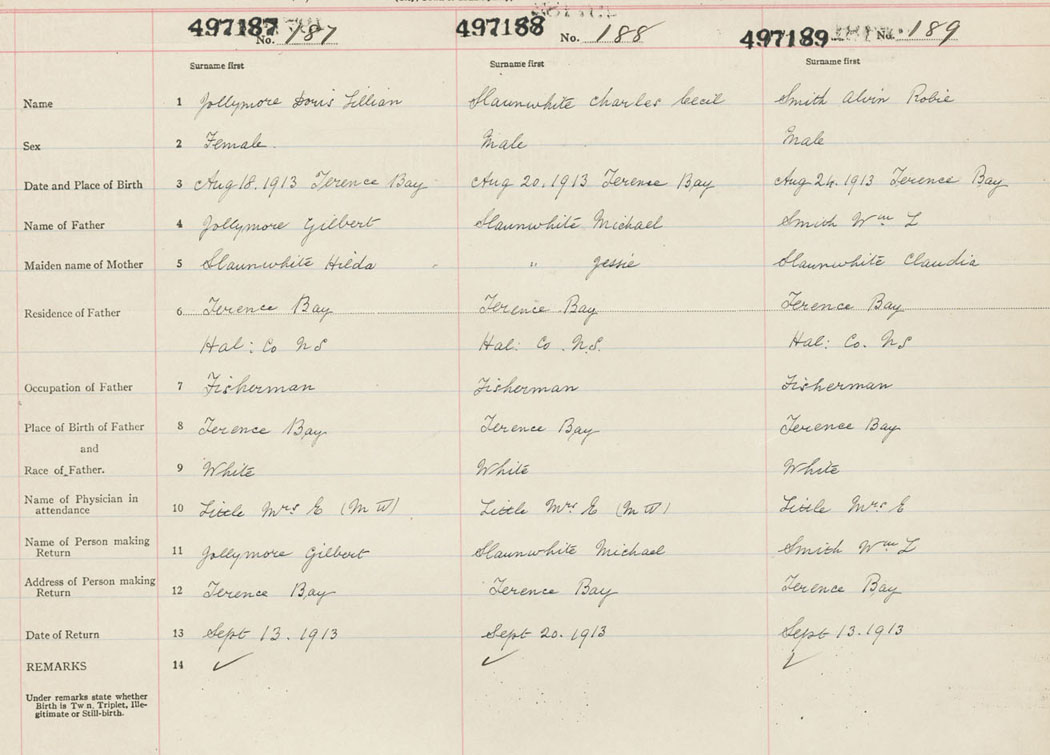 497187 No. 187 497188 No. 188 497189 No. 189
Surname first Surname first Surname first
Name 1 Jollymore Doris Lillian Slaunwhite Charles Cecil Smith Alvin Robie
Sex 2 Female. Male Male
Date and Place of Birth 3 Aug 18. 1913 Terence Bay Aug 20. 1913 Terence Bay Aug 24. 1913 Terence Bay
Name of Father 4 Jollymore Gilbert Slaunwhite Michael Smith Wm L
Maiden name of Mother 5 Slaunwhite Hilda " Jessie Slaunwhite Claudia
Residence of Father 6 Terence Bay Terence Bay Terence Bay
Hal: Co NS Hal: Co. N.S. Hal: Co. NS
Occupation of Father 7 Fisherman Fisherman Fisherman
Place of Birth of Father 8 Terence Bay Terence Bay Terence Bay
and
Race of Father. 9 White White White
Name of Physician in
attendance 10 Little Mrs E (M W) Little Mrs E (M W) Little Mrs E
Name of Person making
Return 11 Jollymore Gilbert Slaunwhite Michael Smith Wm L
Address of Person making
Return 12 Terence Bay Terence Bay Terence Bay
Date of Return 13 Sept 13. 1913 Sept 20. 1913 Sept 13. 1913
REMARKS 14 ✓ ✓ ✓
Under remarks state whether
Birth is Tw n, Triplet, Ille-
gitimate or Still-birth.